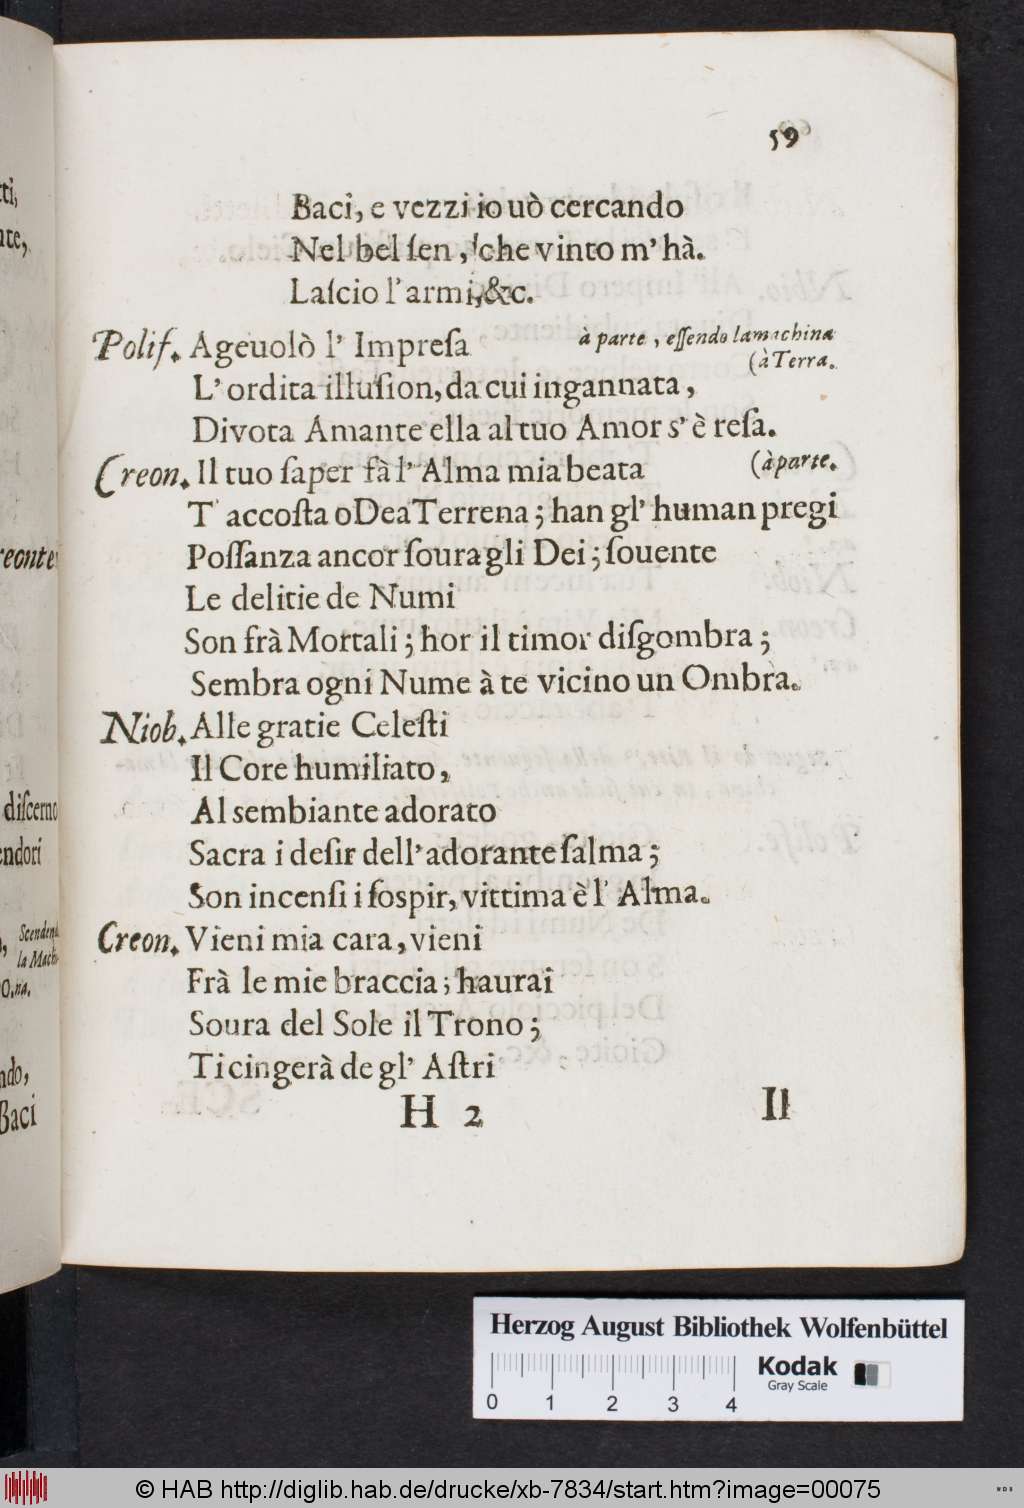 tti,
ate,
reonte
discerno
endori
Scendend
la Machi-
na.
ndo,
Baci
59
Baci, e vezzi io uò cercando
Nel bel ſen, che vinto m' hà.
Laſcio l' armi, &c.
Polif. Ageuolò l' Impreſa à parte, eſſendo la machina
(à Terra.
L' ordita illuſion, da cui ingannata,
Divota Amante ella al tuo Amor s' è reſa.
Creon. Il tuo ſaper fà l' Alma mia beata (à parte.
T' accoſta o Dea Terrena; han gl' human pregi
Poſſanza ancor ſoura gli Dei; ſouente
Le delitie de Numi
Son frà Mortali; hor il timor diſgombra;
Sembra ogni Nume à te vicino un Ombra.
Niob. Alle gratie Celeſti
Il Core humiliato,
Al sembiante adorato
Sacra i deſir dell' adorante ſalma;
Son incenſi i ſospir, vittima è l' Alma.
Creon. Vieni mia cara, vieni
Frà le mie braccia; haurai
Soura del Sole il Trono;
Ti cingerà de gl' Aſtri
H 2 Il
Herzog August Bibliothek Wolfenbüttel
Kodak
Gray Scale
0 1 2 3 4
© HAB http://diglib.hab.de/drucke/xb-7834/start.htm?image=00075